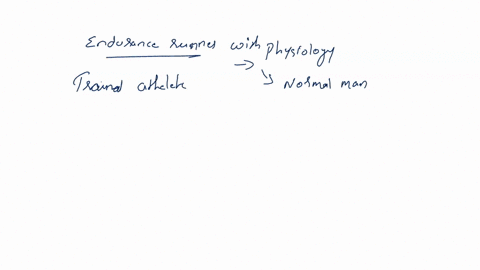 Endurance runner with physiology
→
Trained athelete ↘ Normal man